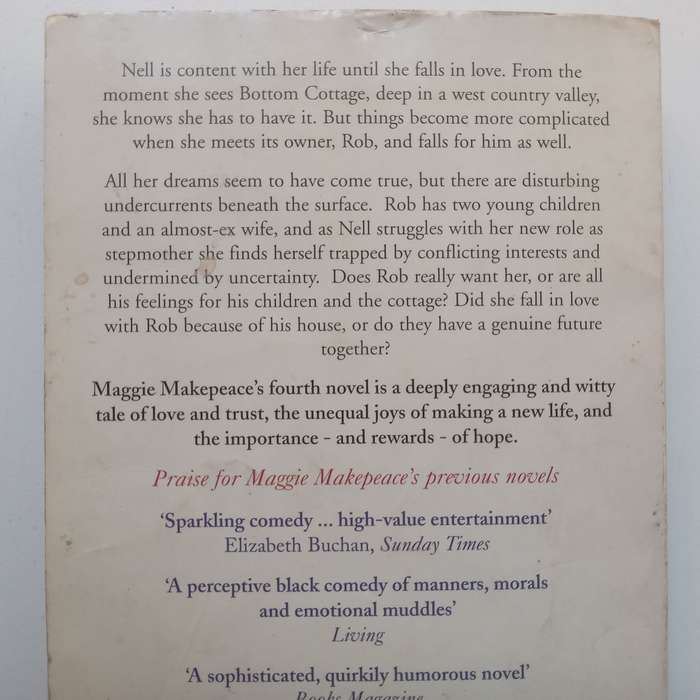 Nell is content with her life until she falls in love. From the
moment she sees Bottom Cottage, deep in a west country valley,
she knows she has to have it. But things become more complicated
when she meets its owner, Rob, and falls for him as well.
All her dreams seem to have come true, but there are disturbing
undercurrents beneath the surface. Rob has two young children
and an almost-ex wife, and as Nell struggles with her new role as
stepmother she finds herself trapped by conflicting interests and
undermined by uncertainty. Does Rob really want her, or are all
his feelings for his children and the cottage? Did she fall in love
with Rob because of his house, or do they have a genuine future
together?
Maggie Makepeace's fourth novel is a deeply engaging and witty
tale of love and trust, the unequal joys of making a new life, and
the importance - and rewards - of hope.
Praise for Maggie Makepeace's previous novels
‘Sparkling comedy ... high-value entertainment’
Elizabeth Buchan, Sunday Times
‘A perceptive black comedy of manners, morals
and emotional muddles’
Living
‘A sophisticated, quirkily humorous novel’
Books Magazine